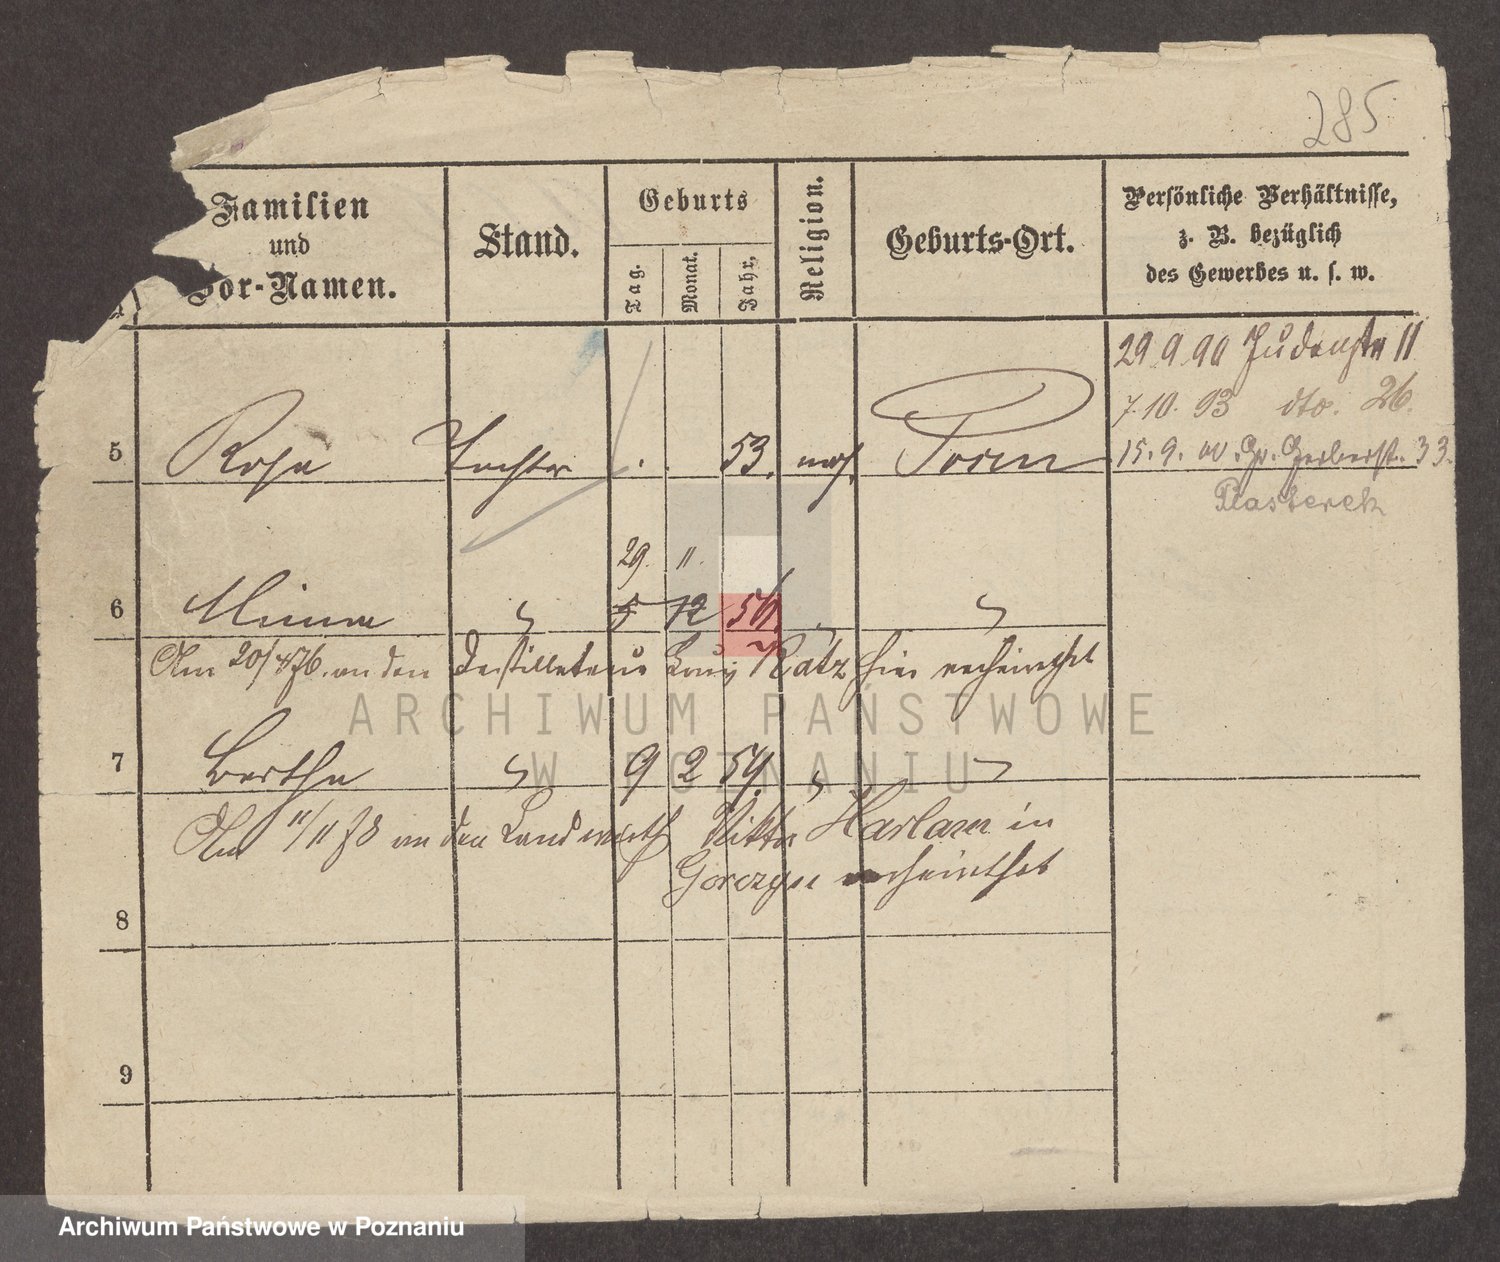 285
Familien
und
Vor-Namen.
Stand.
Geburts
Tag.
Monat.
Jahr,
Religion.
Geburts-Ort.
Persönliche Verhältnisse,
z. B. bezüglich
des Gewerbes u. s. w.
29.9.90 Judenstr 11
7.10.93 dto. 26.
5 Rosa Tochter 53. mos. Posen 15.9.00. Gr. Gerberst. 33.
Piasterek
29. 11.
6 Minna 5 12 56.
Am 20/ 76. an den Destillateur Katz hier verheirathet
ARCHIWUM PAŃSTWOWE
W POZNANIU
7 Bertha 9 2 59.
Am 11/11 78 an den Landwirth Haslam in
Gorczyn verheirathet
8
9
Archiwum Państwowe w Poznaniu